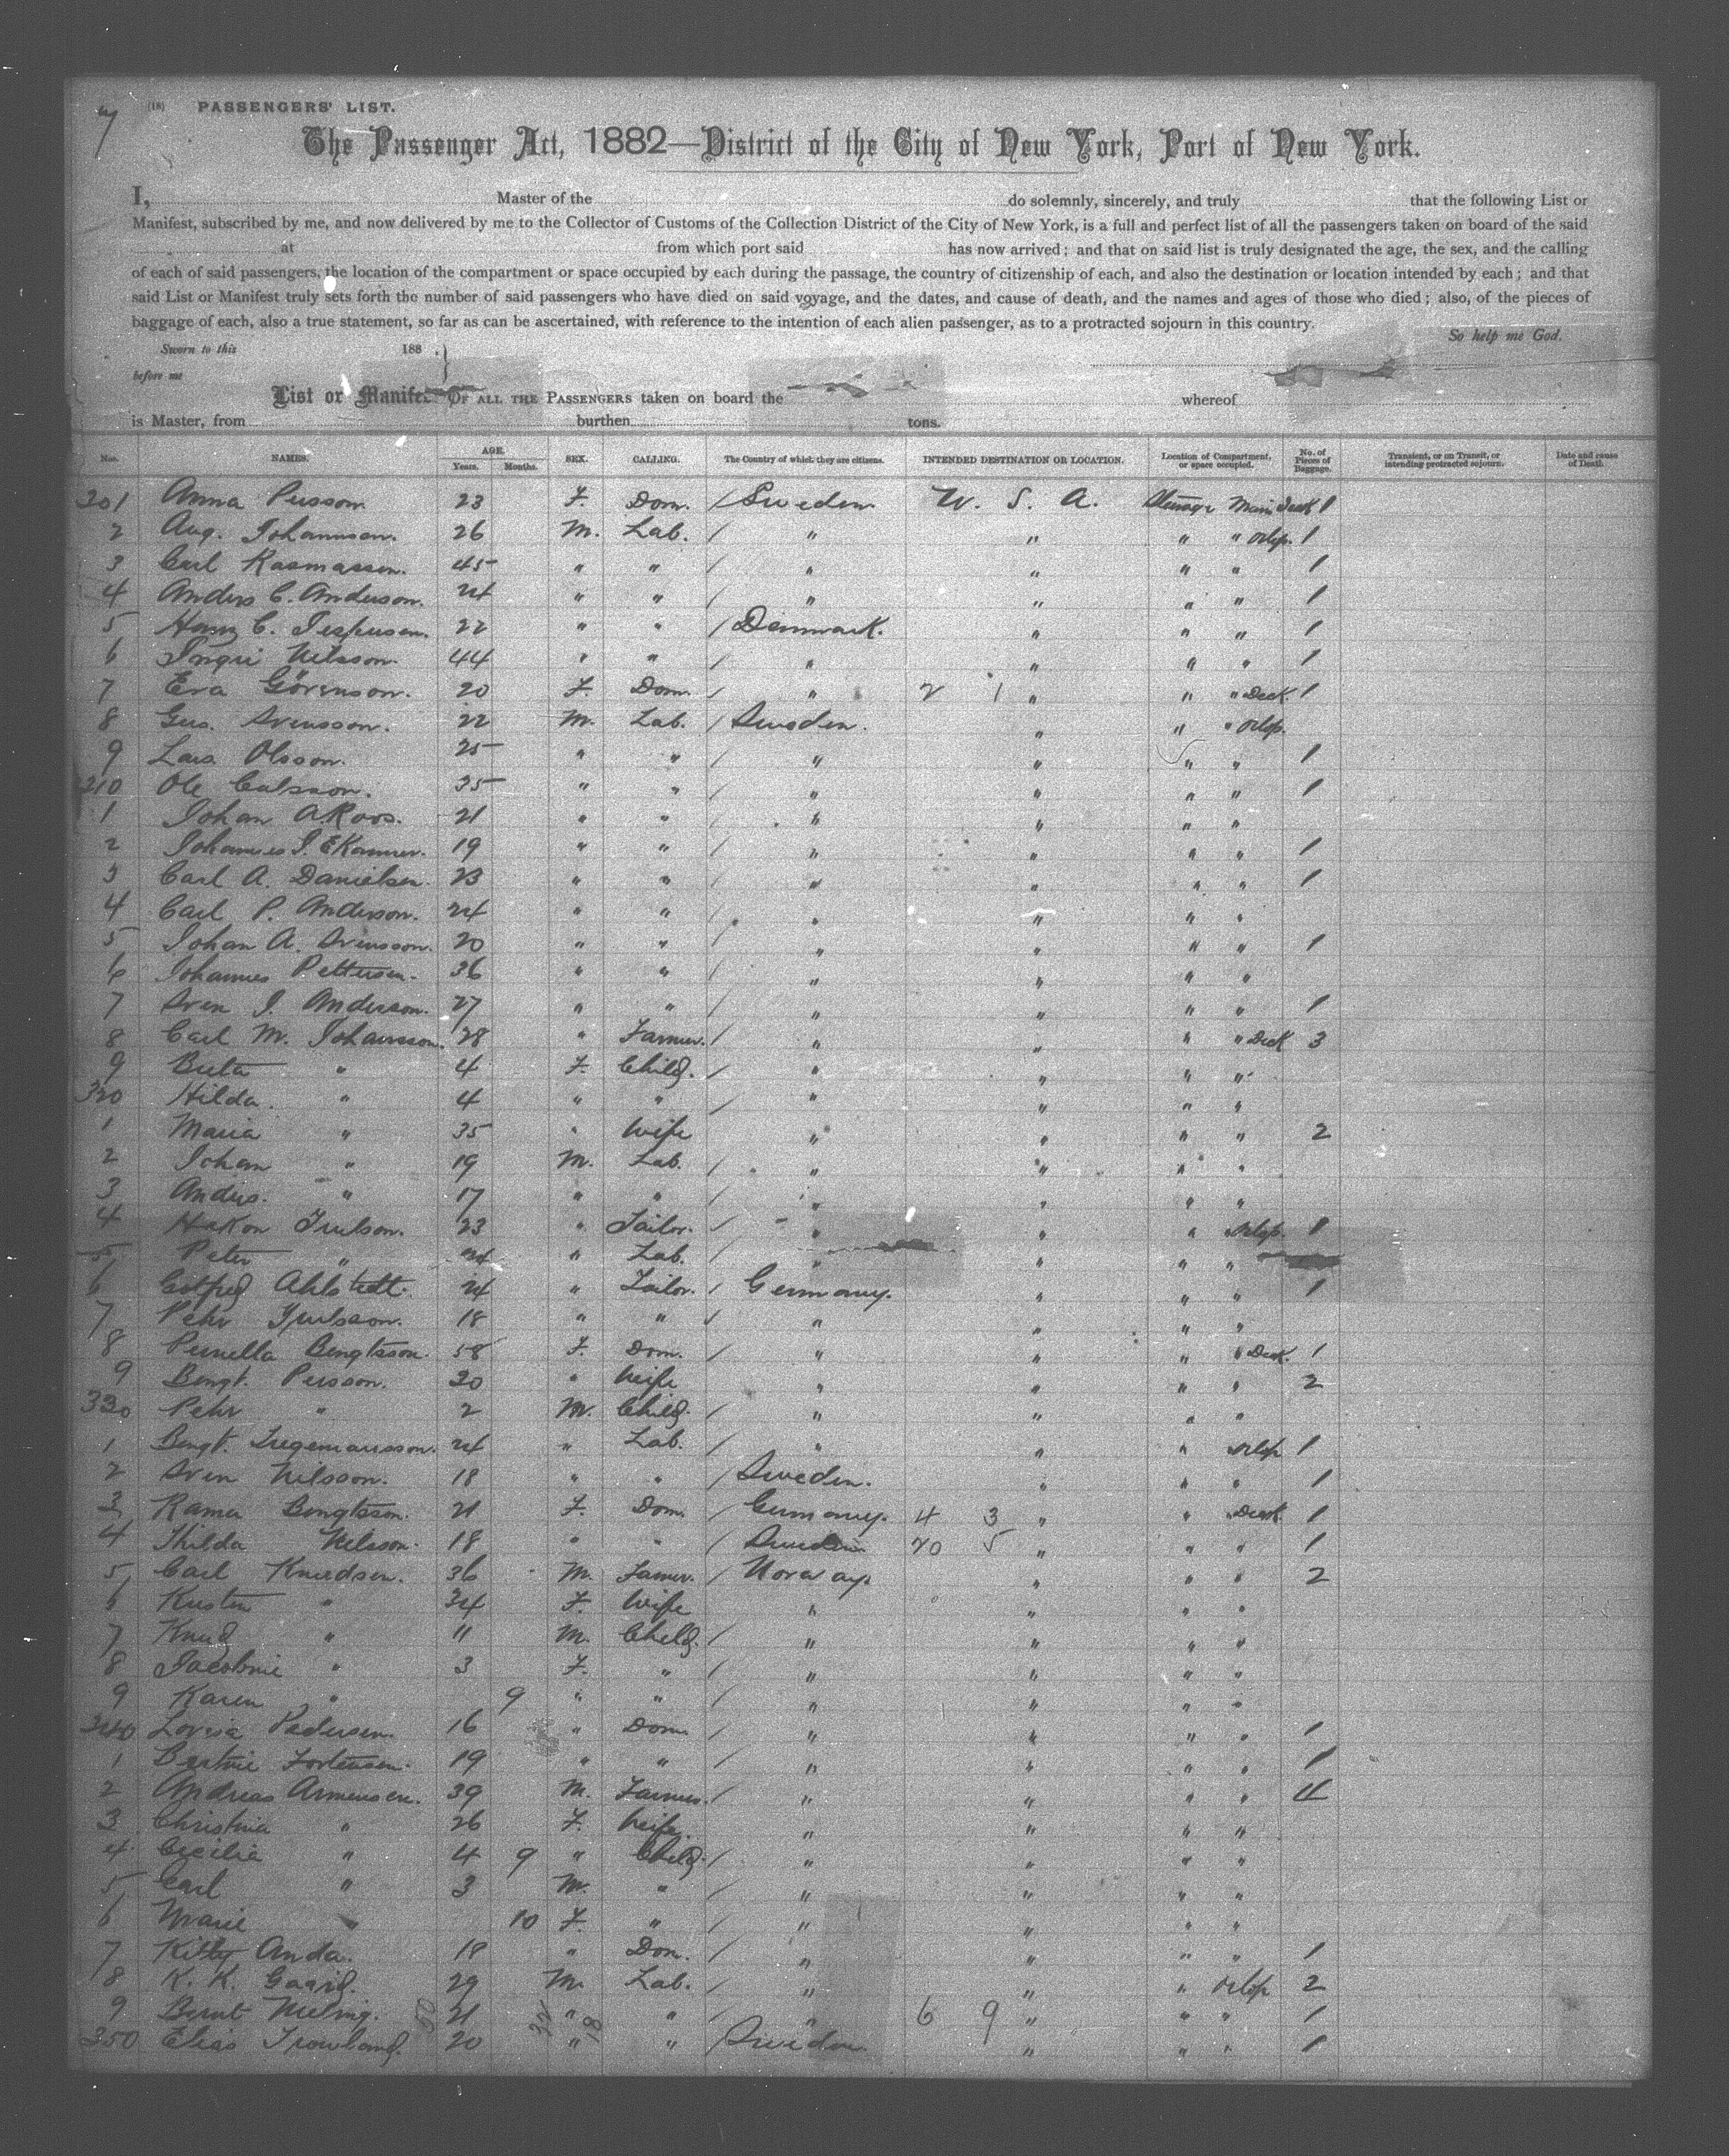 7
(18) PASSENGERS' LIST.
The Passenger Act, 1882—District of the City of New York, Port of New York.
I, Master of the do solemnly, sincerely, and truly that the following List or
Manifest, subscribed by me, and now delivered by me to the Collector of Customs of the Collection District of the City of New York, is a full and perfect list of all the passengers taken on board of the said
at from which port said has now arrived; and that on said list is truly designated the age, the sex, and the calling
of each of said passengers, the location of the compartment or space occupied by each during the passage, the country of citizenship of each, and also the destination or location intended by each; and that
said List or Manifest truly sets forth the number of said passengers who have died on said voyage, and the dates, and cause of death, and the names and ages of those who died; also, of the pieces of
baggage of each, also a true statement, so far as can be ascertained, with reference to the intention of each alien passenger, as to a protracted sojourn in this country.
So help me God.
Sworn to this 188
before me
List or Manifest OF ALL THE PASSENGERS taken on board the whereof
is Master, from burthen tons.
Nos. NAMES. AGE. Years. Months. SEX. CALLING. The Country of which they are citizens. INTENDED DESTINATION OR LOCATION. Location of Compartment, or space occupied. No. of Pieces of Baggage. Transient, or on Transit, or intending protracted sojourn. Date and cause of Death.
301 Anna Persson. 23 F. Dom. / Sweden U. S. A. Steerage Main Deck 1
2 Aug. Johannson. 26 M. Lab. / " " " " Orlop. 1
3 Carl Rasmassen. 45 " " / " " " " 1
4 Anders C. Anderson. 24 " " / " " " " 1
5 Hans C. Jespersen. 22 " " / Denmark. " " " 1
6 Ingri Nilsson. 44 " " / " " " " 1
7 Eva Görenson. 20 F. Dom. / " 2 1 " " " Deck. 1
8 Gus. Svensson. 22 M. Lab. / Sweden. " " " Orlop.
9 Lars Olsson. 25 " " / " " " " 1
310 Ole Carlsson. 35 " " / " " " " 1
1 Johan A. Roos. 21 " " / " " " "
2 Johannes J. Ekanner. 19 " " / " " " " 1
3 Carl A. Danielsen. 23 " " / " " " " 1
4 Carl P. Anderson. 24 " " / " " " "
5 Johan A. Svensson. 20 " " / " " " " 1
6 Johannes Pettersen. 36 " " / " " " "
7 Sven J. Anderson. 27 " " / " " " " 1
8 Carl M. Johansson. 28 " Farmer. / " " " " Deck 3
9 Beta " 4 F. Child. / " " " "
320 Hilda. " 4 " " / " " " "
1 Maria " 35 " Wife " " " " 2
2 Johan " 19 M. Lab. / " " " "
3 Anders. " 17 " " / " " " "
4 Hakon Trulson. 23 " Tailor. / " " " " Orlop. 1
5 Peter " 24 " Lab. " " " "
6 Gotfred Ahlstedt. 24 " Tailor. / Germany. " " " 1
7 Pehr Trulsson. 18 " " / " " " "
8 Pernella Bengtsson. 58 F. Dom. / " " " " Deck. 1
9 Bengt. Persson. 30 " Wife " " " " 2
330 Pehr " 2 M. Child. / " " " "
1 Bengt. Ingemansson. 24 " Lab. / " " " Orlop 1
2 Sven Nilsson. 18 " " / Sweden. " " " 1
3 Rama Bengtsson. 21 F. Dom. / Germany. 4 3 " " Deck 1
4 Thilda Nilsson. 18 " " / Sweden 20 5 " " " 1
5 Carl Knudsen. 36 M. Farmer. / Norway. " " " 2
6 Kirsten " 34 F. Wife " " " "
7 Knud " 11 M. Child. / " " " "
8 Jacobine " 3 F. " / " " " "
9 Karen " 9 " " / " " " "
340 Lovisa Pedersen. 16 " Dom. / " " " " 1
1 Bertine Tortensen. 19 " " / " " " " 1
2 Andreas Armensen. 39 M. Farmer. / " " " " 4
3 Christina " 26 F. Wife " " " "
4 Cecilia " 4 9 " Child. / " " " "
5 Carl " 3 M. " / " " " "
6 Marie " 10 F. " / " " " "
7 Kitty Anda. 18 " Dom. / " " " " 1
8 K. K. Gaard. 29 M. Lab. / " " " Orlop 2
9 Bernt Meling. 21 " " / " 6 9 " " " 1
350 Elias Trowland. 20 " " / Sweden " " " 1